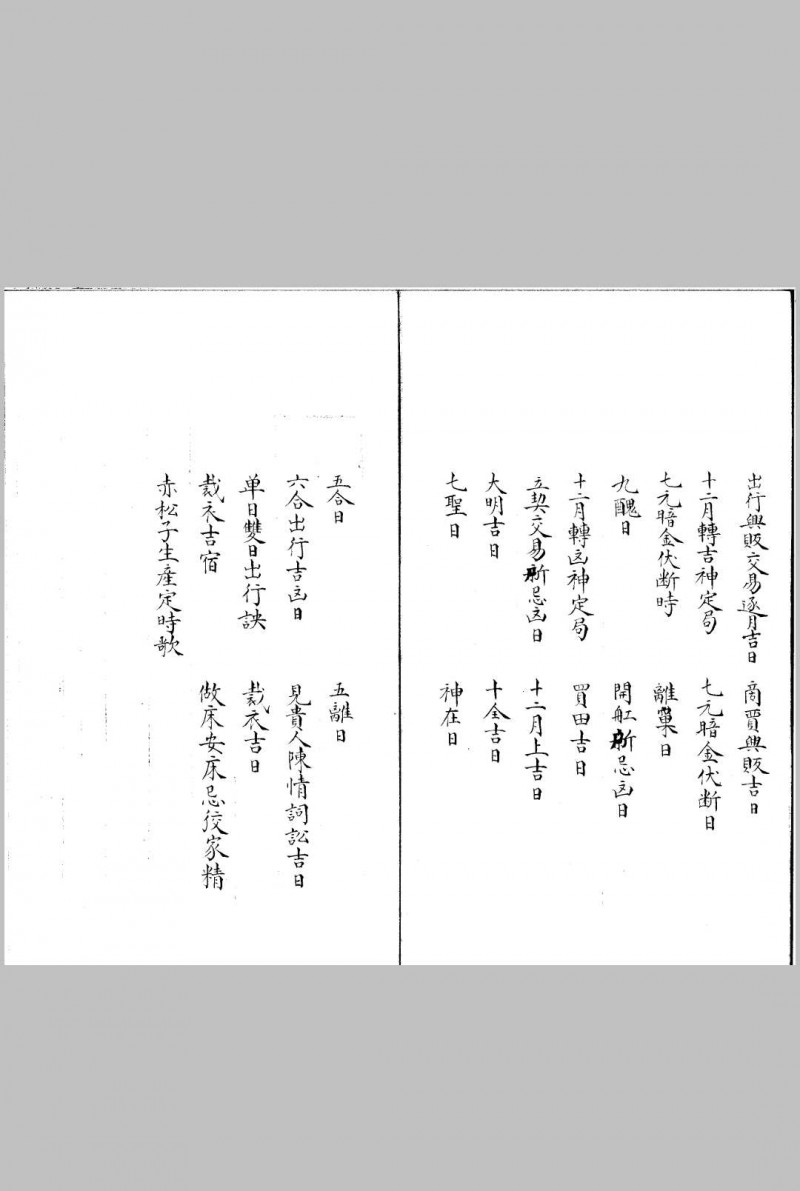 出行興販交易逐月吉日 商賈興販吉日
十二月轉吉神定局 七元暗金伏断日
七元暗金伏断時 離窠日
九醜日 開舡新忌凶日
十二月轉凶神定局 買田吉日
立契交易新忌凶日 十二月上吉日
大明吉日 十全吉日
七聖日 神在日
五合日 五離日
六合出行吉凶日 見貴人陳情詞訟吉日
单日雙日出行訣 裁衣吉日
裁衣吉宿 做床安床忌狡家精
赤松子生產定時歌